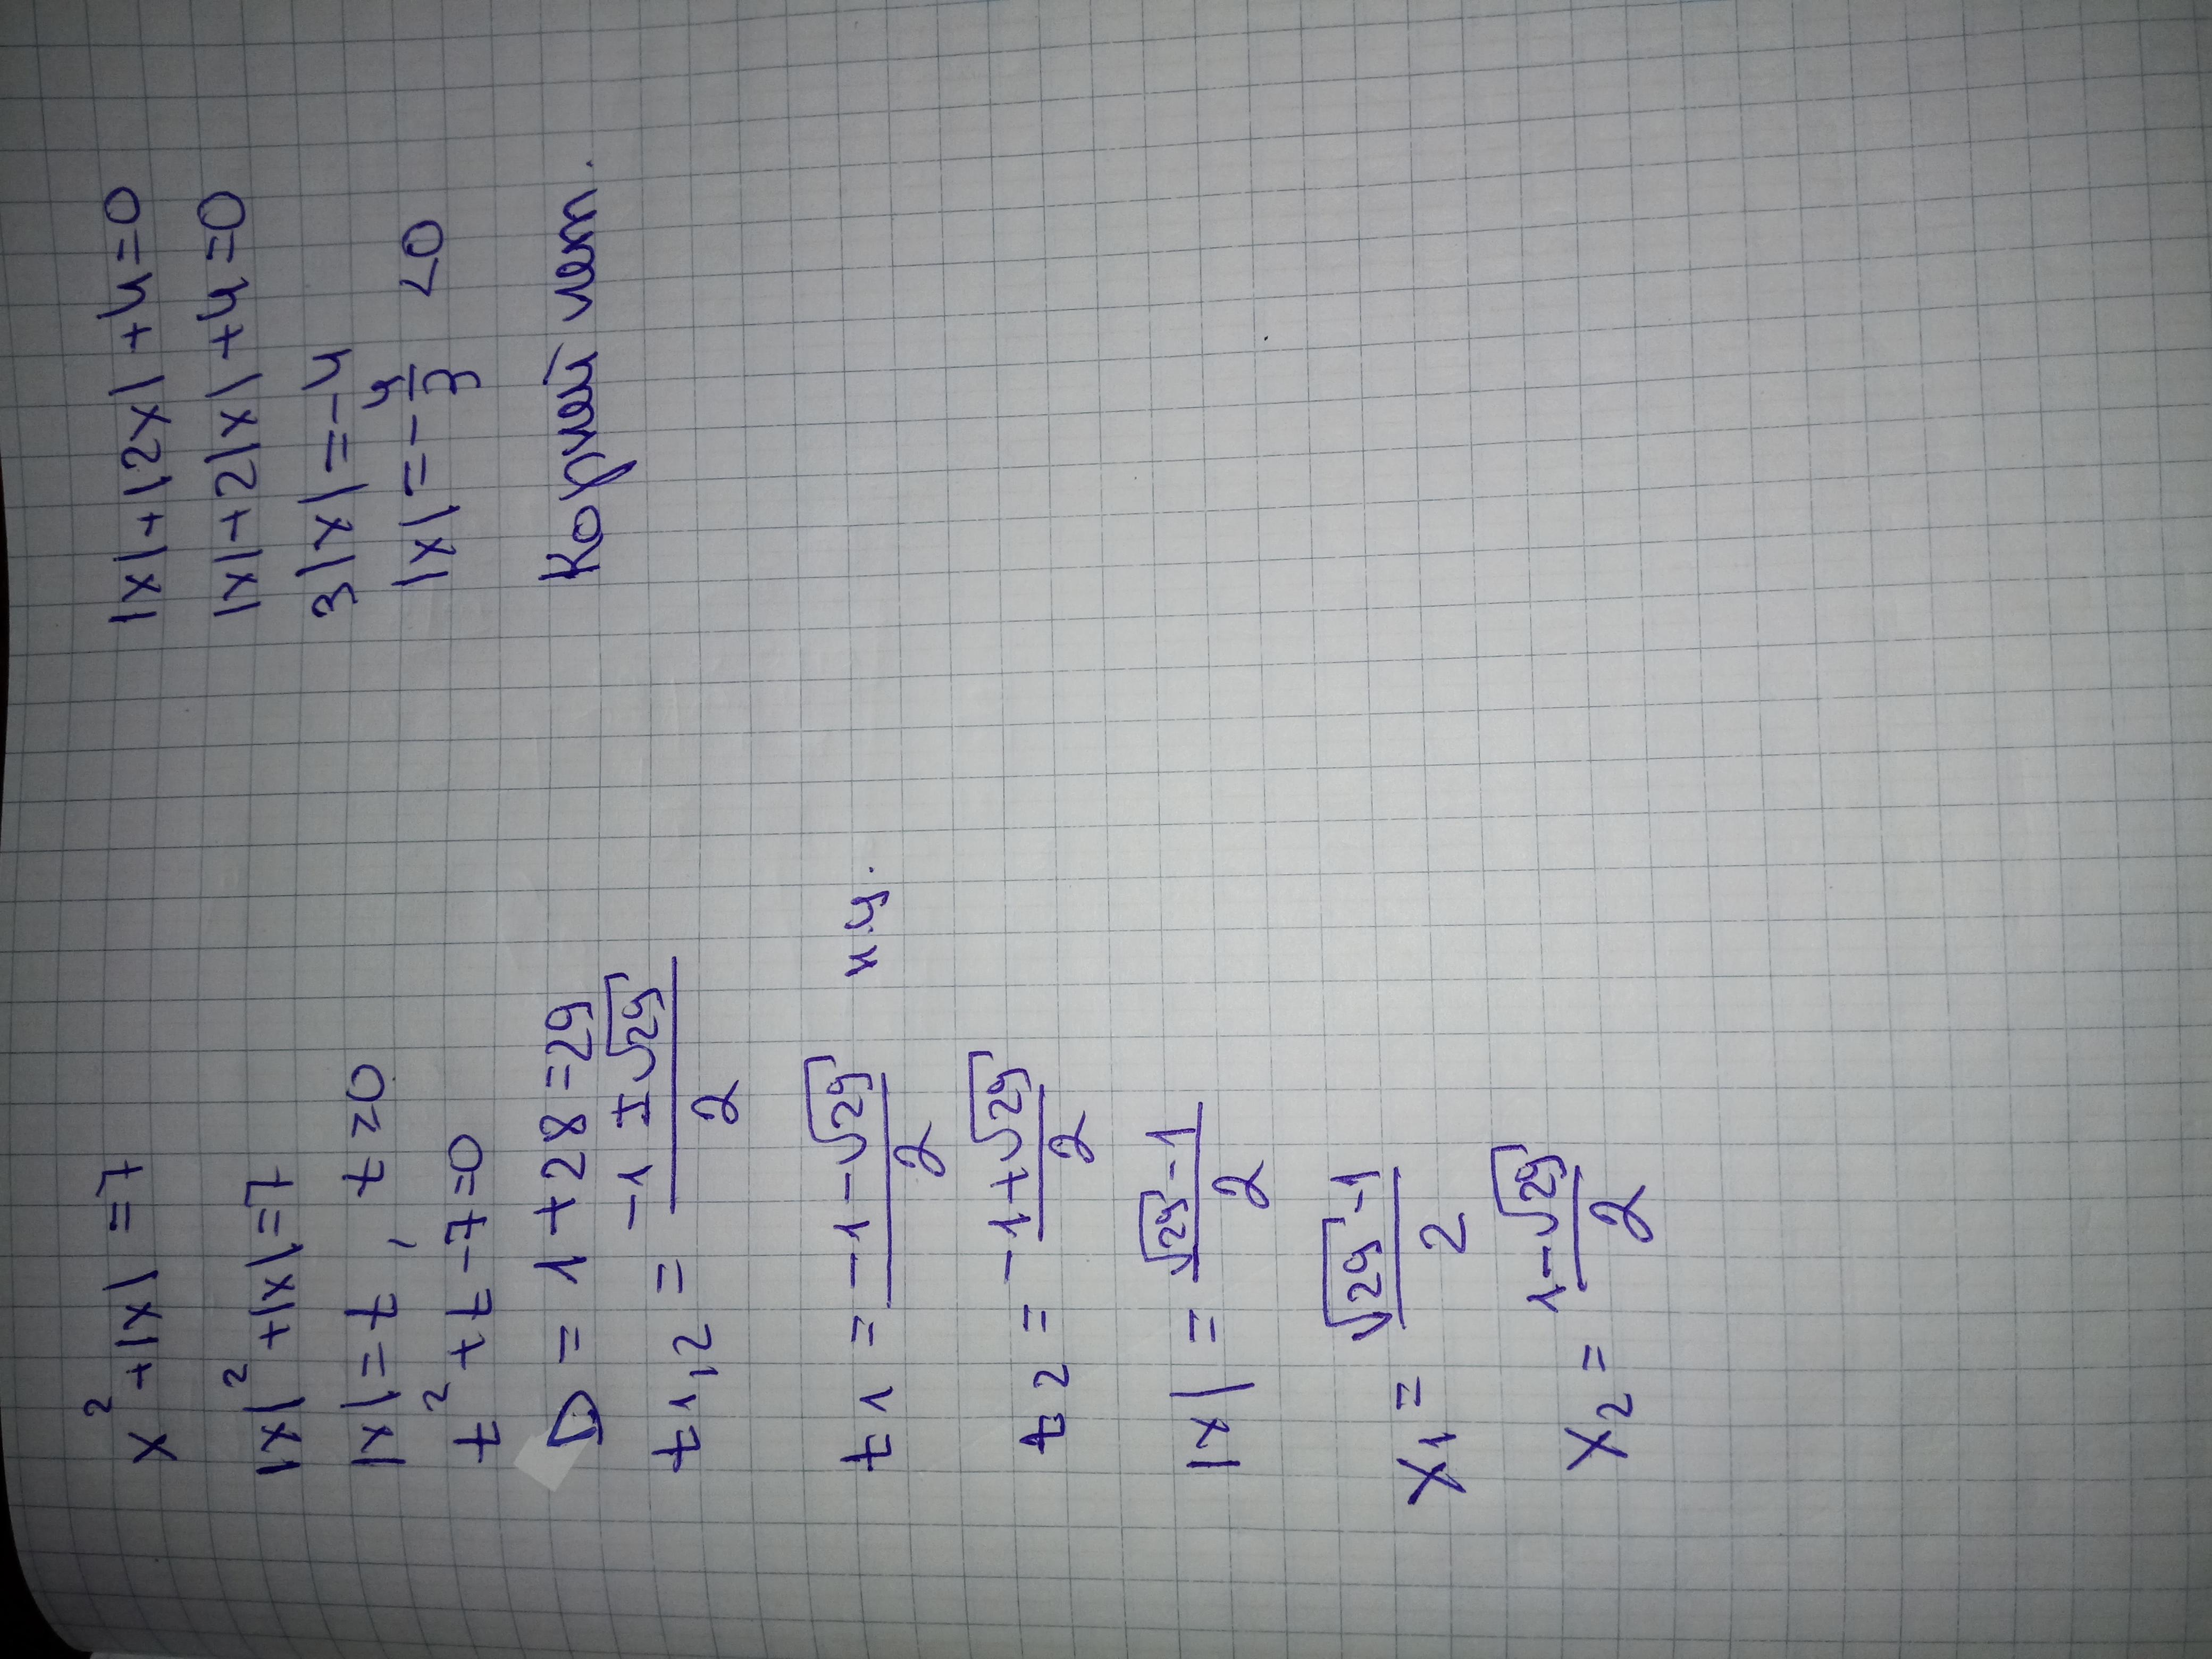 x² + |x| = 7
|x|² + |x| = 7
|x| = t, t ≥ 0
t² + t - 7 = 0
D = 1 + 28 = 29
t1,2 = (-1 ± √29)/2
t1 = (-1 - √29)/2 п.ч.
t2 = (-1 + √29)/2
|x| = (√29 - 1)/2
x1 = (√29 - 1)/2
x2 = (1 - √29)/2
|x| + |2x| + 4 = 0
|x| + 2|x| + 4 = 0
3|x| = -4
|x| = -4/3 < 0
Корней нет.